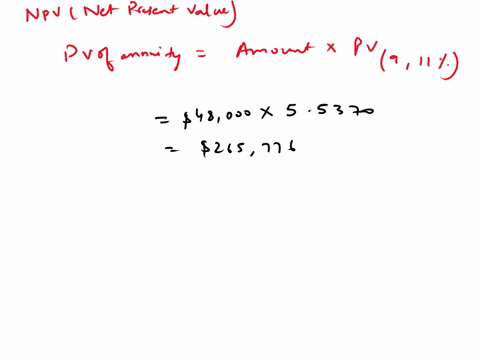 NPV (Net Present Value)
PV of annuity = Amount × PV (9, 11%)
= $48,000 × 5.5370
= $265,776